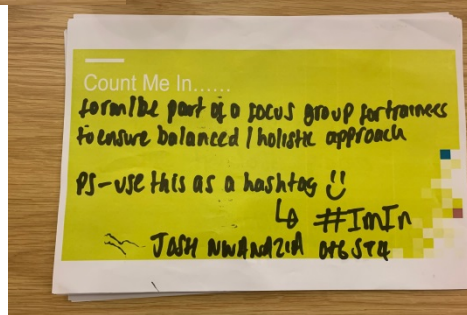 Count Me In......
form/be part of a focus group for trainees
to ensure balanced / holistic approach
PS - use this as a hashtag !!
↳ #ImIn
JOSH